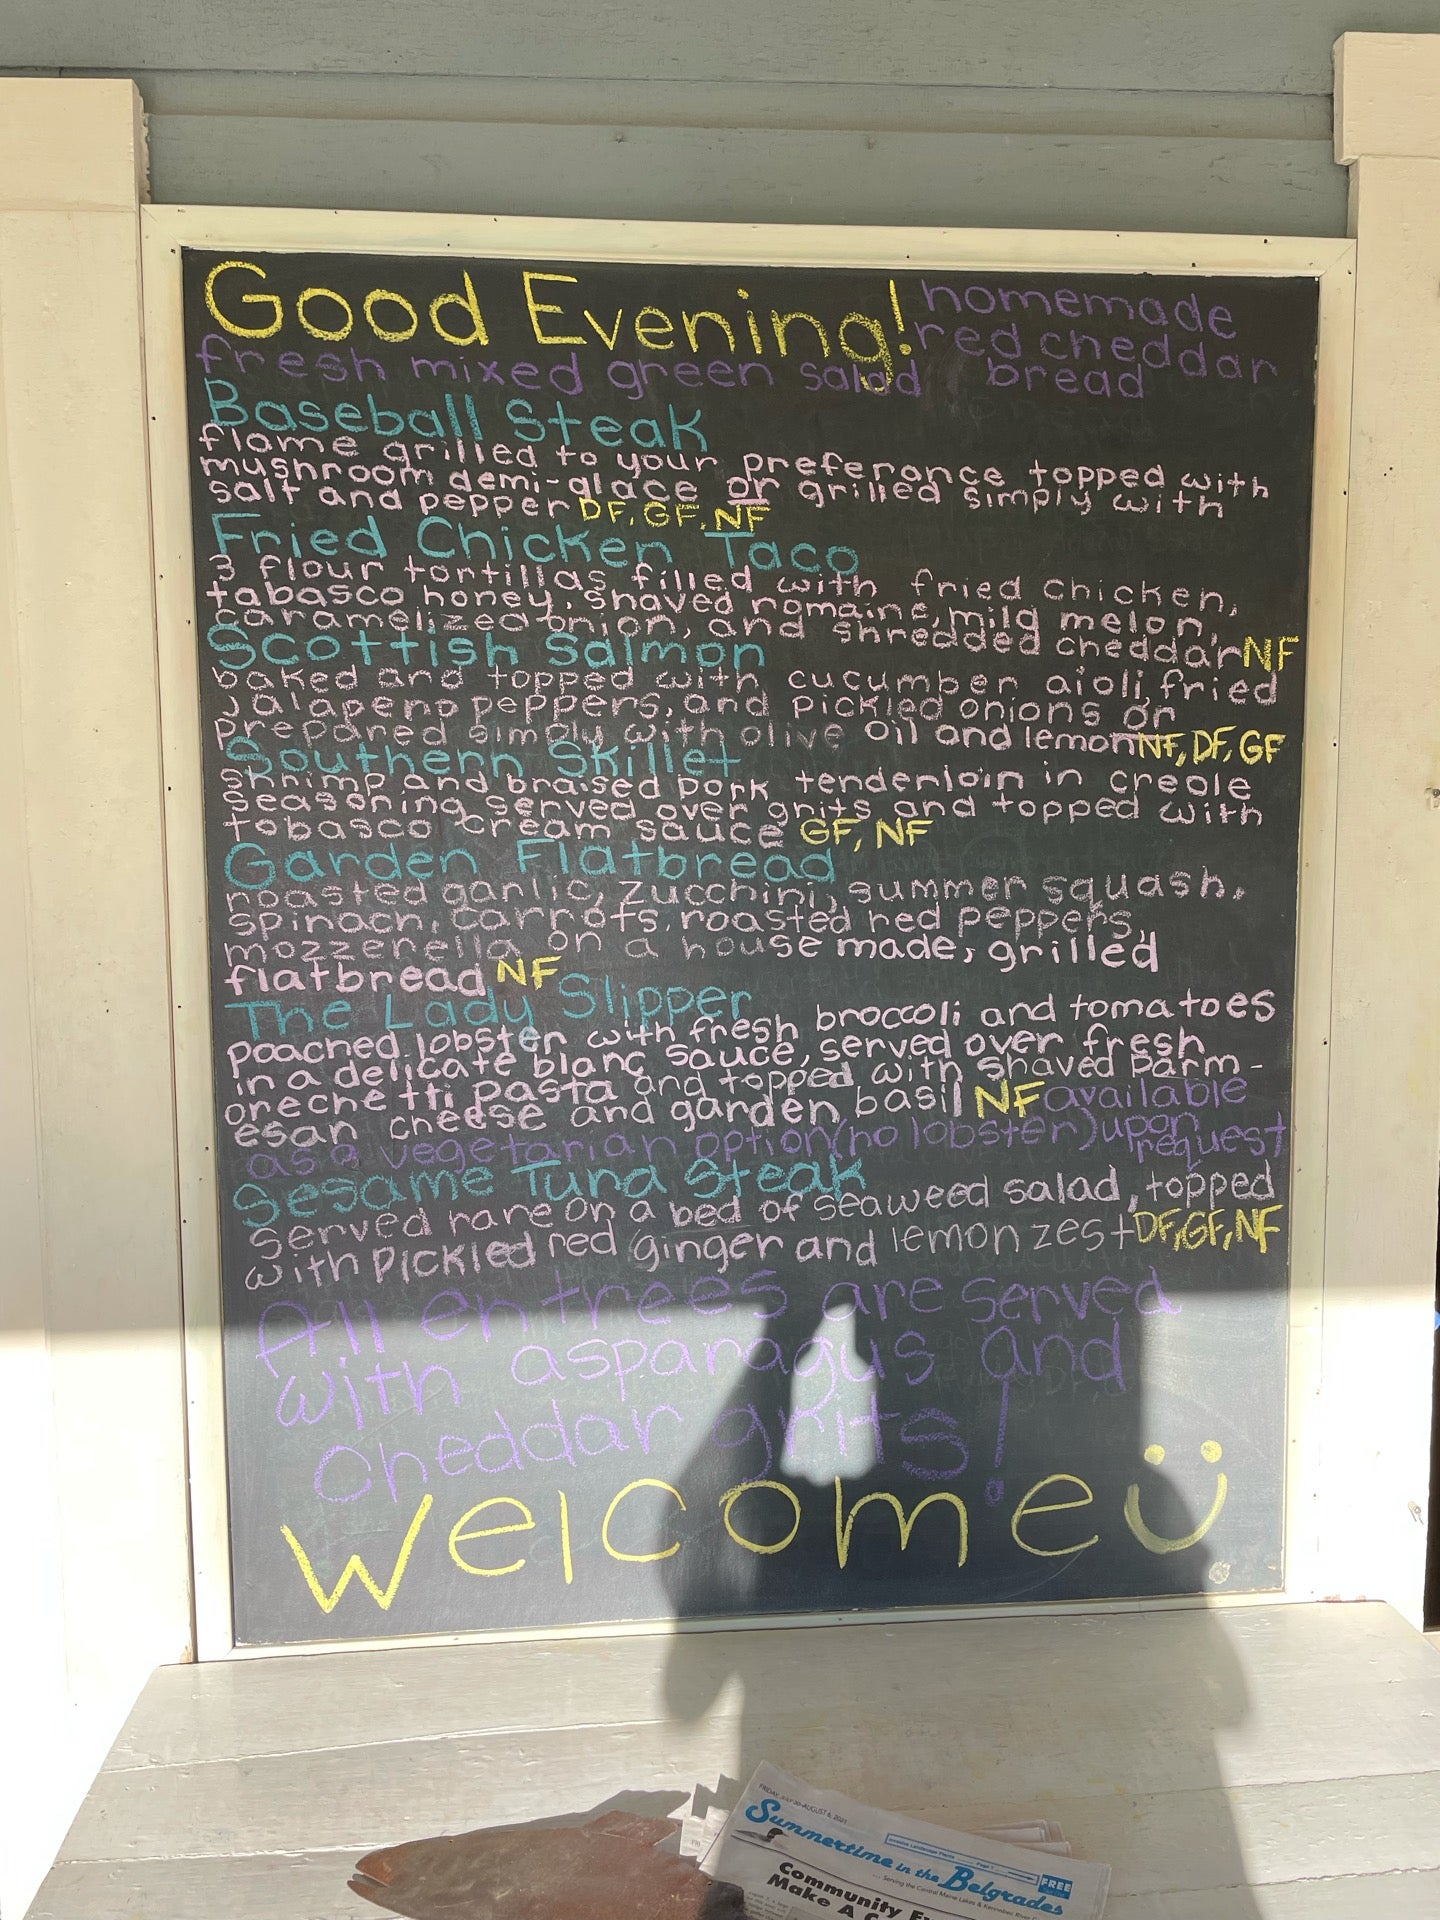 Good Evening! homemade
red cheddar
fresh mixed green salad bread
Baseball Steak
flame grilled to your preferance topped with
mushroom demi-glace or grilled simply with
salt and pepper DF, GF, NF
Fried Chicken Taco
3 flour tortillas filled with fried chicken,
tabasco honey, shaved romaine, mild melon,
caramelized onion, and shredded cheddar NF
Scottish Salmon
baked and topped with cucumber aioli, fried
jalapeno peppers, and pickled onions or
prepared simply with olive oil and lemon NF, DF, GF
Southern Skillet
shrimp and braised pork tenderloin in creole
seasoning served over grits and topped with
tobasco cream sauce GF, NF
Garden Flatbread
roasted garlic, zucchini, summer squash,
spinach, carrots, roasted red peppers,
mozzerella on a house made, grilled
flatbread NF
The Lady Slipper
poached lobster with fresh broccoli and tomatoes
in a delicate blanc sauce, served over fresh
orechetti pasta and topped with shaved parm-
esan cheese and garden basil NF available
as a vegetarian option (no lobster) upon
request
Sesame Tuna Steak
served rare on a bed of seaweed salad, topped
with pickled red ginger and lemon zest DF, GF, NF
All entrees are served
with asparagus and
cheddar grits!
Welcome
FRIDAY JULY 30-AUGUST 6, 2021
Summertime in the Belgrades
Invasive Landscape Plants Page 7
FREE
... Serving the Central Maine Lakes & Kennebec River
Community
Make A